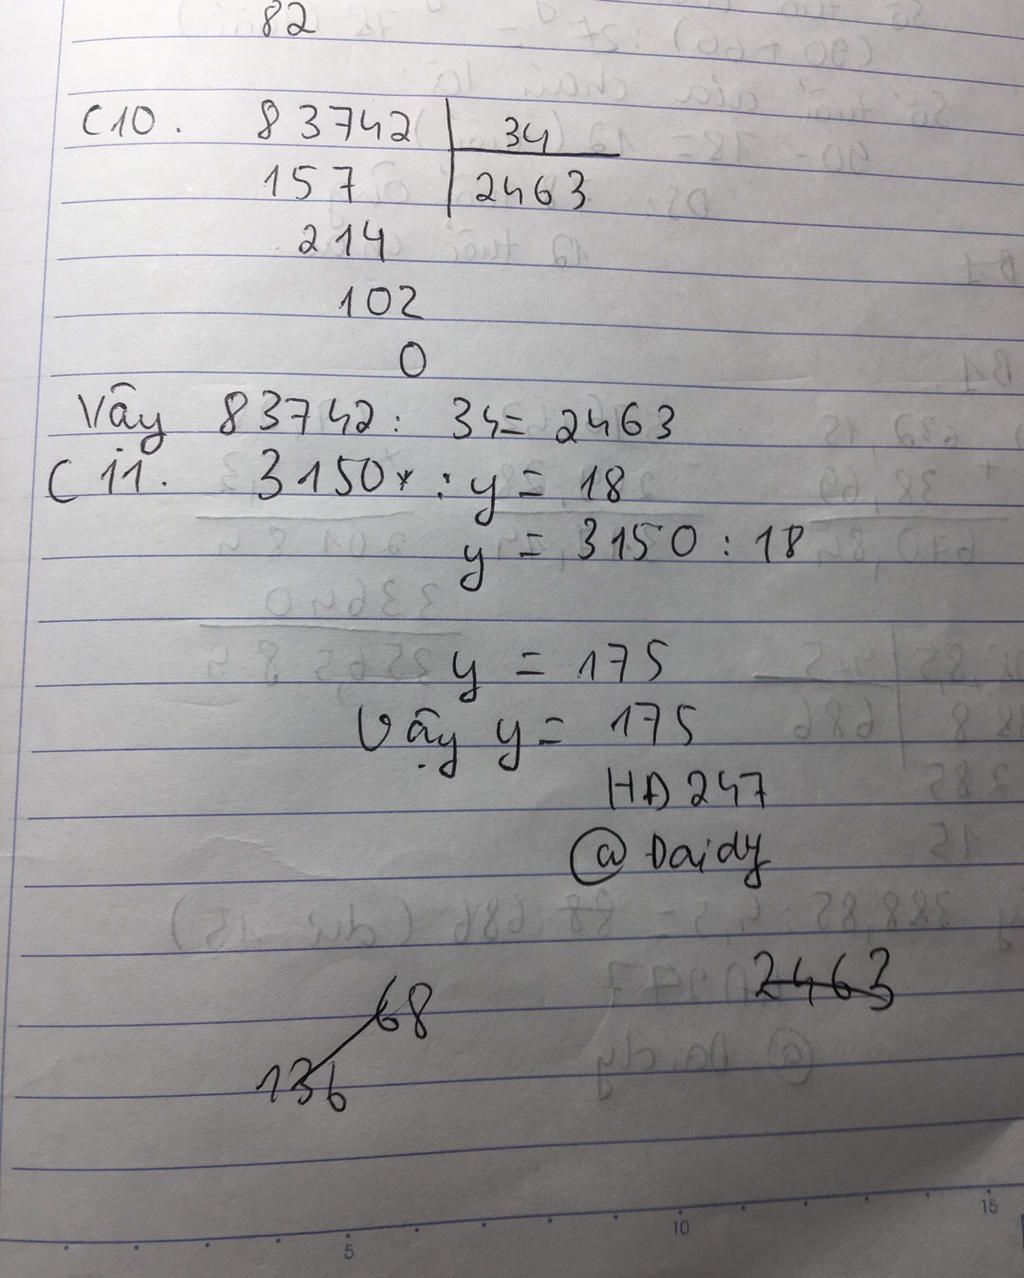 82
C10. 83742 34
157 2463
214
102
0
Vậy 83742 : 34 = 2463
C11. 3150 : y = 18
y = 3150 : 18
y = 175
Vậy y = 175
HD247
@Daidy
2463
68
136
5 10 15